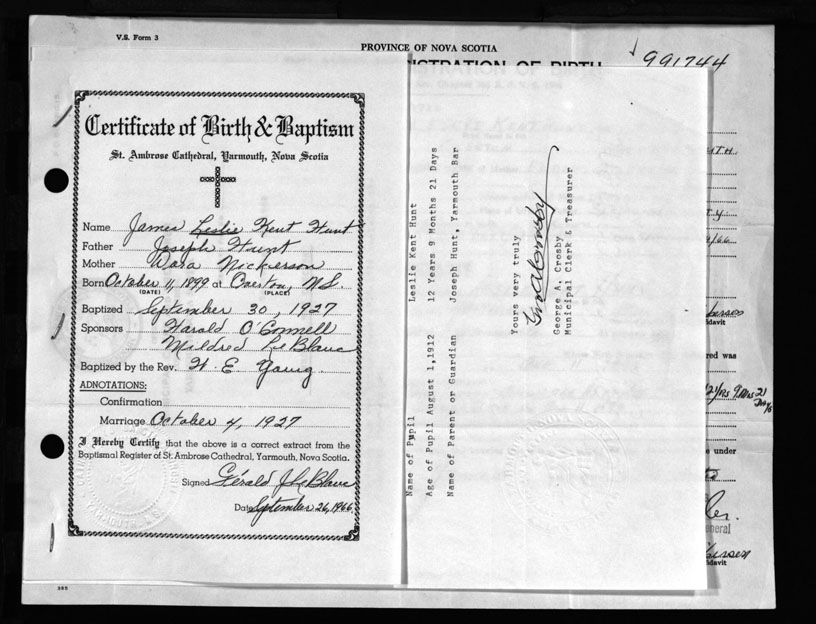 V.S. Form 3
PROVINCE OF NOVA SCOTIA
REGISTRATION OF BIRTH
991744
Certificate of Birth & Baptism
St. Ambrose Cathedral, Yarmouth, Nova Scotia
Name James Leslie Kent Hunt
Father Joseph Hunt
Mother Dara Nickerson
Born October 11, 1899 at Overton, N.S.
(DATE) (PLACE)
Baptized September 30, 1927
Sponsors Harald O'Connell
Mildred LeBlanc
Baptized by the Rev. W. E. Young.
ADNOTATIONS:
Confirmation
Marriage October 4, 1927
I Hereby Certify that the above is a correct extract from the
Baptismal Register of St. Ambrose Cathedral, Yarmouth, Nova Scotia.
Signed Gérald J LeBlanc
Date September 26, 1966
385
Name of Pupil Leslie Kent Hunt
Age of Pupil August 1, 1912 12 Years 9 Months 21 Days
Name of Parent or Guardian Joseph Hunt, Yarmouth Bar
Yours very truly
Geo A Crosby
George A. Crosby
Municipal Clerk & Treasurer
davit
red was
e under
eneral
davit